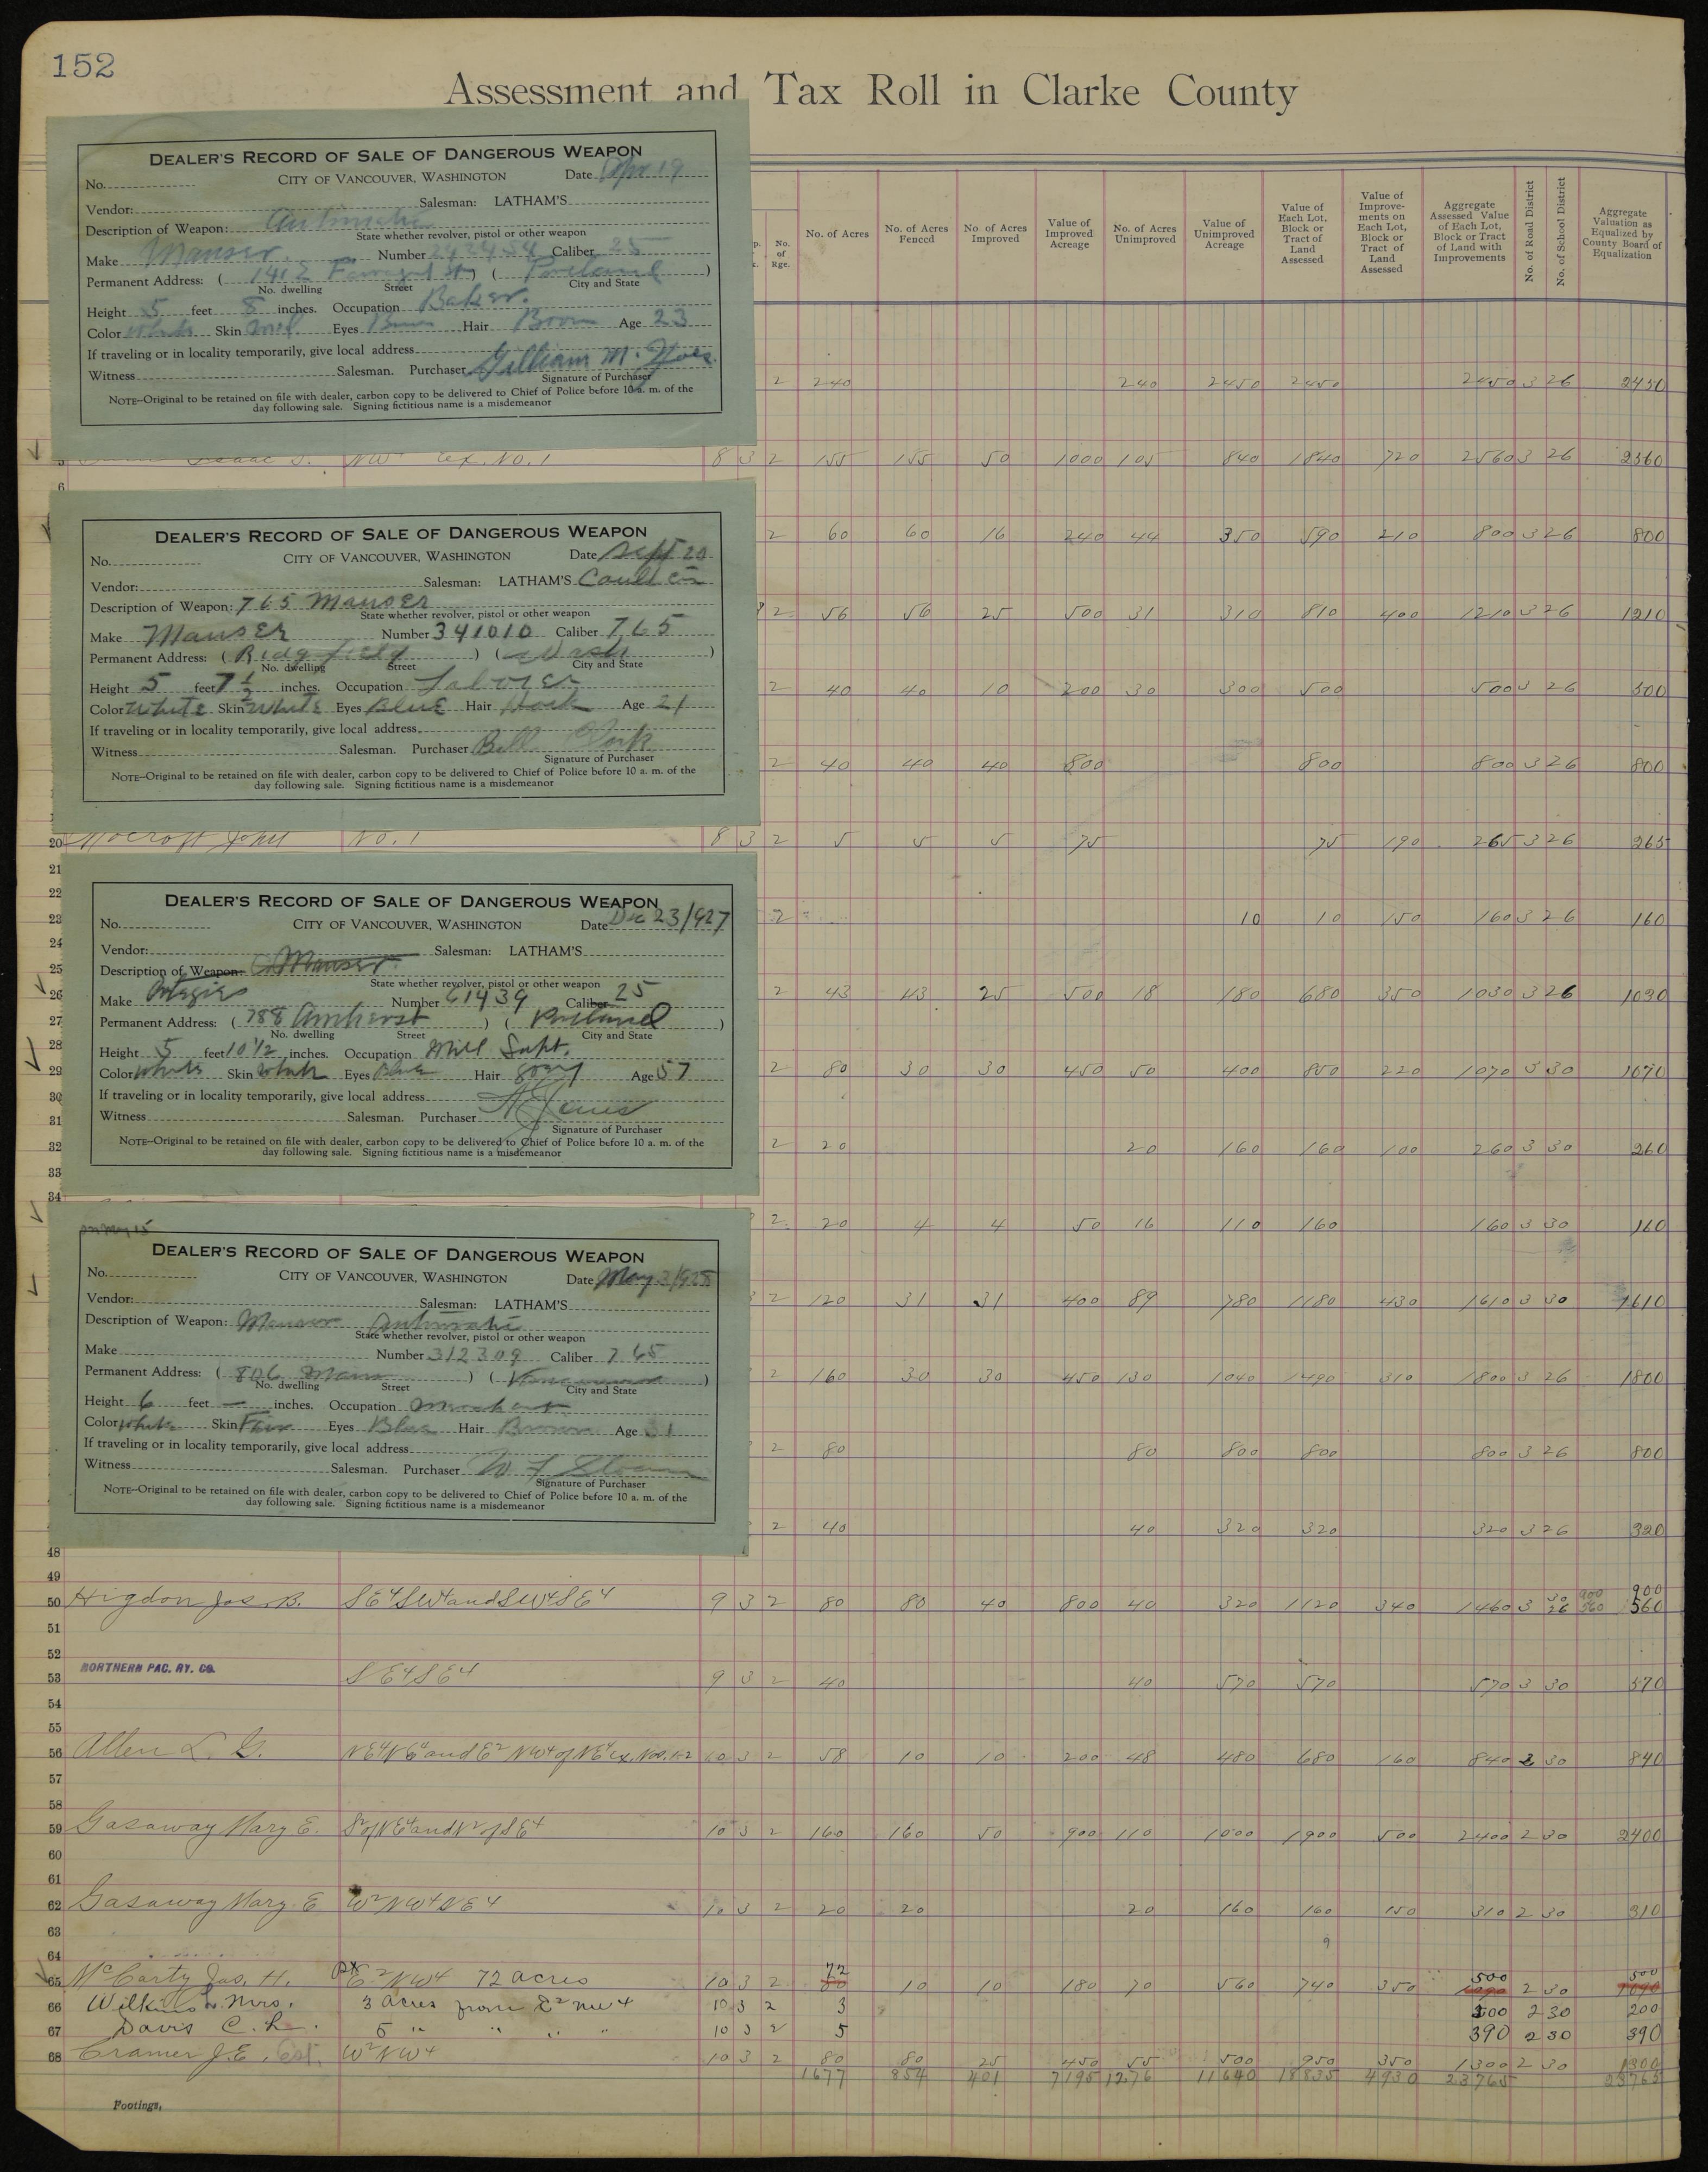 152
Assessment and Tax Roll in Clarke County
No. of Rge.
No. of Acres
No. of Acres Fenced
No. of Acres Improved
Value of Improved Acreage
No. of Acres Unimproved
Value of Unimproved Acreage
Value of Each Lot, Block or Tract of Land Assessed
Value of Improve-ments on Each Lot, Block or Tract of Land Assessed
Aggregate Assessed Value of Each Lot, Block or Tract of Land with Improvements
No. of Road District
No. of School District
Aggregate Valuation as Equalized by County Board of Equalization
DEALER'S RECORD OF SALE OF DANGEROUS WEAPON
No. CITY OF VANCOUVER, WASHINGTON Date Apr 19
Vendor: Salesman: LATHAM'S
Description of Weapon: Automatic
State whether revolver, pistol or other weapon
Make Mauser Number 242454 Caliber 25
Permanent Address: ( 1412 Farragut St ) ( Portland )
No. dwelling Street City and State
Height 5 feet 8 inches. Occupation Baker.
Color White Skin Eyes Hair Age 23
If traveling or in locality temporarily, give local address
Witness Salesman. Purchaser William M.
Signature of Purchaser
NOTE—Original to be retained on file with dealer, carbon copy to be delivered to Chief of Police before 10 a. m. of the
day following sale. Signing fictitious name is a misdemeanor
2 240 240 2450 2450 2450 3 26 2450
Isaac S. NW4 ex. No. 1 8 3 2 155 155 50 1000 105 840 1840 720 2560 3 26 2560
6
DEALER'S RECORD OF SALE OF DANGEROUS WEAPON
No. CITY OF VANCOUVER, WASHINGTON Date Sept 20
Vendor: Salesman: LATHAM'S
Description of Weapon: 765 Mauser
State whether revolver, pistol or other weapon
Make Mauser Number 341010 Caliber 7.65
Permanent Address: ( Ridgfield ) ( Wash )
No. dwelling Street City and State
Height 5 feet 7 1/2 inches. Occupation Laborer
Color White Skin White Eyes Blue Hair Age 21
If traveling or in locality temporarily, give local address
Witness Salesman. Purchaser Bill
Signature of Purchaser
NOTE—Original to be retained on file with dealer, carbon copy to be delivered to Chief of Police before 10 a. m. of the
day following sale. Signing fictitious name is a misdemeanor
2 60 60 16 240 44 350 590 210 800 3 26 800
2 56 56 25 500 31 310 810 400 1210 3 26 1210
2 40 40 10 200 30 300 500 500 3 26 500
2 40 40 40 800 800 800 3 26 800
20 John No. 1 8 3 2 5 5 5 75 75 190 265 3 26 265
DEALER'S RECORD OF SALE OF DANGEROUS WEAPON
No. CITY OF VANCOUVER, WASHINGTON Date Dec 23/927
Vendor: Salesman: LATHAM'S
Description of Weapon: Mauser
State whether revolver, pistol or other weapon
Make Ortgies Number 61439 Caliber 25
Permanent Address: ( 788 Amherst ) ( Portland )
No. dwelling Street City and State
Height 5 feet 10 1/2 inches. Occupation Mill Supt.
Color White Skin White Eyes Blue Hair gray Age 57
If traveling or in locality temporarily, give local address
Witness Salesman. Purchaser
Signature of Purchaser
NOTE—Original to be retained on file with dealer, carbon copy to be delivered to Chief of Police before 10 a. m. of the
day following sale. Signing fictitious name is a misdemeanor
21
22
23 2 10 10 150 160 3 26 160
24
25
26 2 43 43 25 500 18 180 680 350 1030 3 26 1030
27
28
29 2 80 30 30 450 50 400 850 220 1070 3 30 1070
30
31
32 2 20 20 160 160 100 260 3 30 260
33
34
2 20 4 4 50 16 110 160 160 3 30 160
DEALER'S RECORD OF SALE OF DANGEROUS WEAPON
No. CITY OF VANCOUVER, WASHINGTON Date May 3/928
Vendor: Salesman: LATHAM'S
Description of Weapon: Mauser Automatic
State whether revolver, pistol or other weapon
Make Number 312309 Caliber 7 65
Permanent Address: ( 806 Main ) ( Vancouver )
No. dwelling Street City and State
Height 6 feet — inches. Occupation Merchant
Color White Skin Fair Eyes Blue Hair Brown Age 31
If traveling or in locality temporarily, give local address
Witness Salesman. Purchaser W
Signature of Purchaser
NOTE—Original to be retained on file with dealer, carbon copy to be delivered to Chief of Police before 10 a. m. of the
day following sale. Signing fictitious name is a misdemeanor
2 120 31 31 400 89 780 1180 430 1610 3 30 1610
2 160 30 30 450 130 1040 1490 310 1800 3 26 1800
2 80 80 800 800 800 3 26 800
2 40 40 320 320 320 3 26 320
48
49
50 Higdon Jos. B. SE4SW4 and SW4SE4 9 3 2 80 80 40 800 40 320 1120 340 1460 3 30 26 900 560 900 560
51
52
53 NORTHERN PAC. RY. CO. SE4SE4 9 3 2 40 40 570 570 570 3 30 570
54
55
56 Allen L. G. NE4NE4 and E2 NW4 of NE4 ex. Nos. 1-2 10 3 2 58 10 10 200 48 480 680 160 840 2 30 840
57
58
59 Gasaway Mary E. S2 of NE4 and N2 of SE4 10 3 2 160 160 50 900 110 1000 1900 500 2400 2 30 2400
60
61
62 Gasaway Mary E W2NW4SE4 10 3 2 20 20 20 160 160 150 310 2 30 310
63
64
65 McCarty Jas. H. Pt E2NW4 72 acres 10 3 2 72 10 10 180 70 560 740 350 500 2 30 500
66 Wilkins Mrs. 3 acres from E2 NW4 10 3 2 3 200 2 30 200
67 Davis C. L. 5 " " " " 10 3 2 5 390 2 30 390
68 Cramer J.E. Est. W2NW4 10 3 2 80 80 25 450 55 500 950 350 1300 2 30 1300
1677 854 401 7195 1276 11640 18835 4930 23765 23765
Footings,